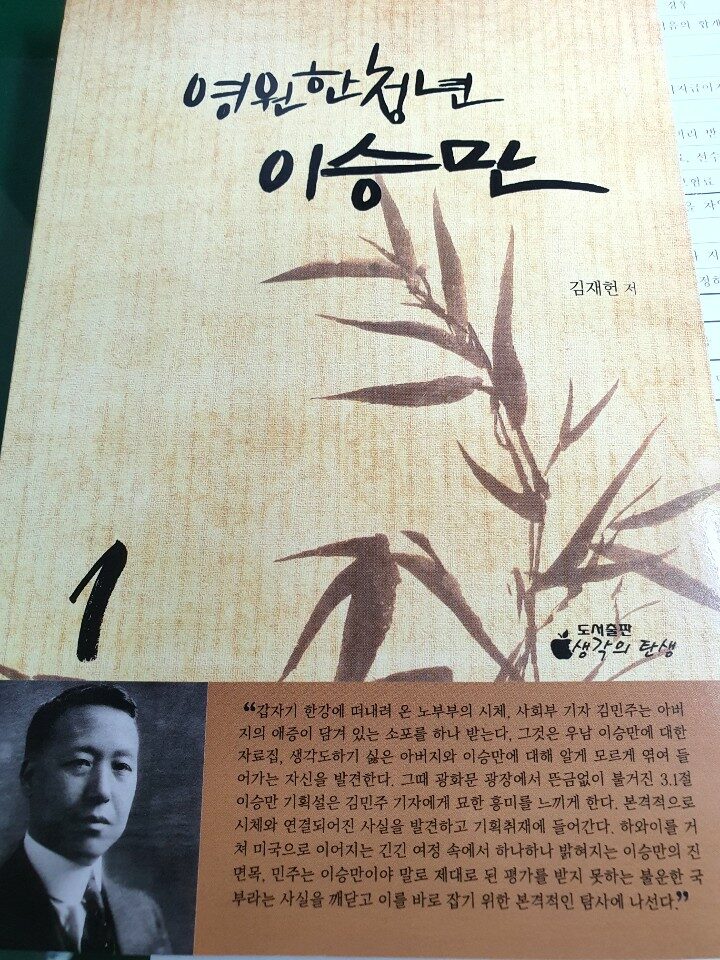 영원한 청년
이승만
김재헌 저
1
도서출판
생각의 탄생
“갑자기 한강에 떠내려 온 노부부의 시체, 사회부 기자 김민주는 아버
지의 애증이 담겨 있는 소포를 하나 받는다. 그것은 우남 이승만에 대한
자료집, 생각도하기 싫은 아버지와 이승만에 대해 알게 모르게 엮여 들
어가는 자신을 발견한다. 그때 광화문 광장에서 뜬금없이 불거진 3.1절
이승만 기획설은 김민주 기자에게 묘한 흥미를 느끼게 한다. 본격적으로
시체와 연결되어진 사실을 발견하고 기획취재에 들어간다. 하와이를 거
쳐 미국으로 이어지는 긴긴 여정 속에서 하나하나 밝혀지는 이승만의 진
면목. 민주는 이승만이야 말로 제대로 된 평가를 받지 못하는 불운한 국
부라는 사실을 깨닫고 이를 바로 잡기 위한 본격적인 탐사에 나선다.”